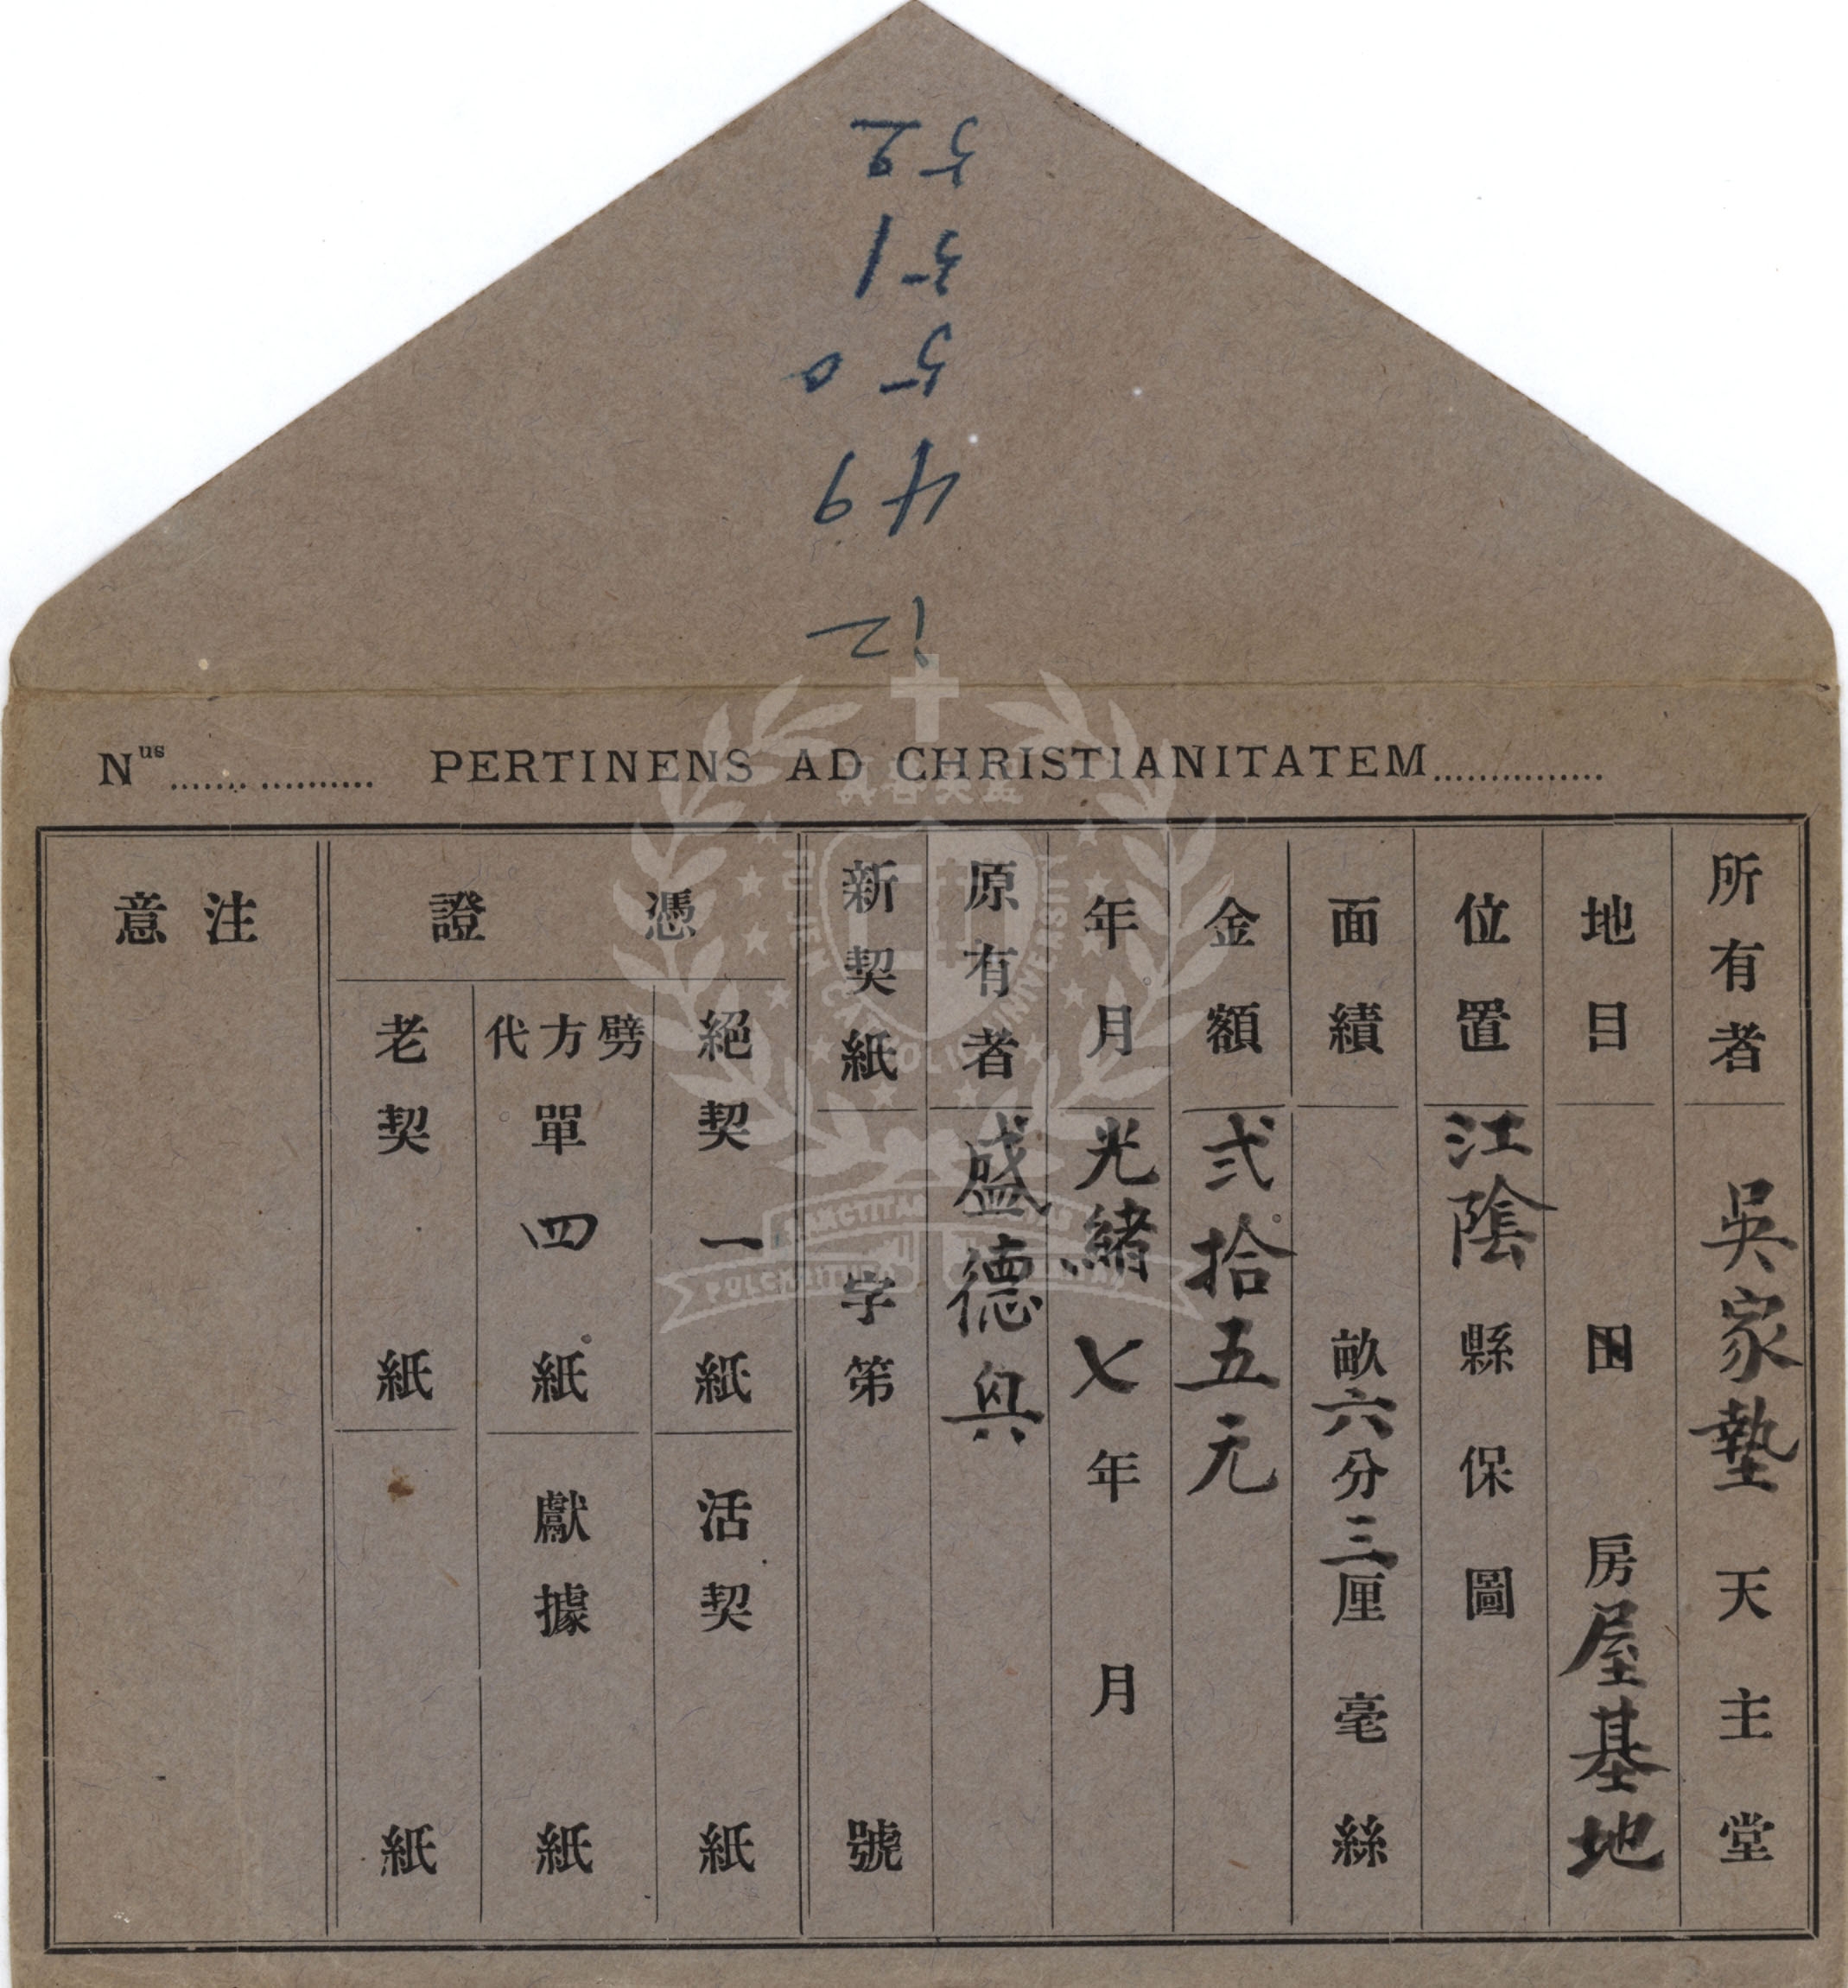 52
51
50
49
江
Nus ................. PERTINENS AD CHRISTIANITATEM ...............
所有者 吳家墊 天主堂
地目 田 房屋基地
位置 江陰縣 保 圖
面績 畝六分三厘 毫 絲
金額 弍拾五元
年月 光緒七年 月
原有者 盛德與
新契紙 字第 號
憑證
絕契 一 紙 活契 紙
劈方代單 四 紙 獻據 紙
老契 紙 紙
注意